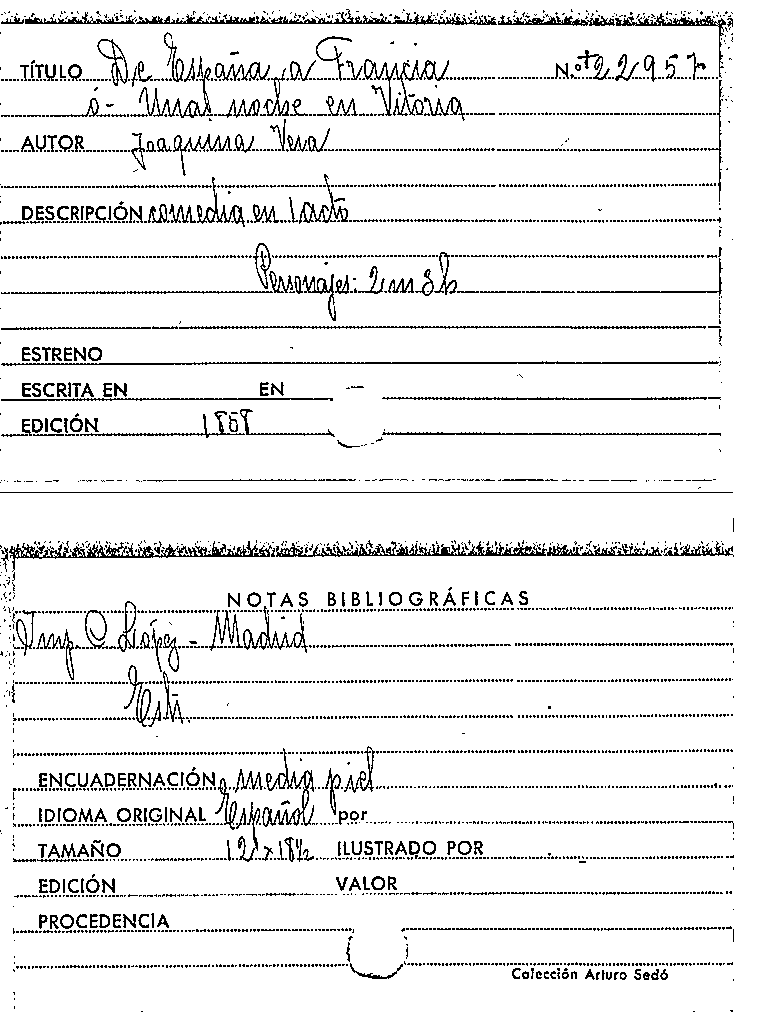 TÍTULO De España a Francia N.º 22957
ó - Una noche en Vitoria
AUTOR Joaquina Vera
DESCRIPCIÓN comedia en 1 acto
Personajes: 2 m 3 h
ESTRENO
ESCRITA EN EN —
EDICIÓN 1858
NOTAS BIBLIOGRÁFICAS
Imp. C. López - Madrid
ENCUADERNACIÓN media piel
IDIOMA ORIGINAL Español por
TAMAÑO 12 x 18½ ILUSTRADO POR
EDICIÓN VALOR
PROCEDENCIA
Colección Arturo Sedó